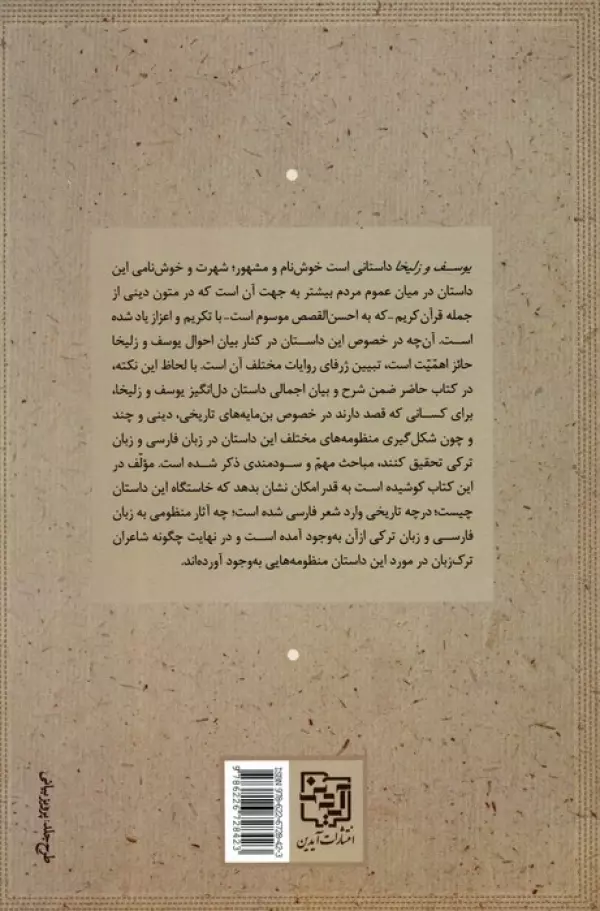 یوسف و زلیخا داستانی است خوش‌نام و مشهور؛ شهرت و خوش‌نامی این
داستان در میان عموم مردم بیشتر به جهت آن است که در متون دینی از
جمله قرآن کریم -که به احسن‌القصص موسوم است- با تکریم و اعزاز یاد شده
است. آن‌چه در خصوص این داستان در کنار بیان احوال یوسف و زلیخا
حائز اهمّیّت است، تبیین ژرفای روایات مختلف آن است. با لحاظ این نکته،
در کتاب حاضر ضمن شرح و بیان اجمالی داستان دل‌انگیز یوسف و زلیخا،
برای کسانی که قصد دارند در خصوص بن‌مایه‌های تاریخی، دینی و چند
و چون شکل‌گیری منظومه‌های مختلف این داستان در زبان فارسی و زبان
ترکی تحقیق کنند، مباحث مهمّ و سودمندی ذکر شده است. مؤلّف در
این کتاب کوشیده است به قدر امکان نشان بدهد که خاستگاه این داستان
چیست؛ درچه تاریخی وارد شعر فارسی شده است؛ چه آثار منظومی به زبان
فارسی و زبان ترکی ازآن به‌وجود آمده است و در نهایت چگونه شاعران
ترک‌زبان در مورد این داستان منظومه‌هایی به‌وجود آورده‌اند.
ISBN 978-622-6728-42-3
9786226728423
آیدین
انتشارات آیدین
طرح جلد: پرویز بیانی